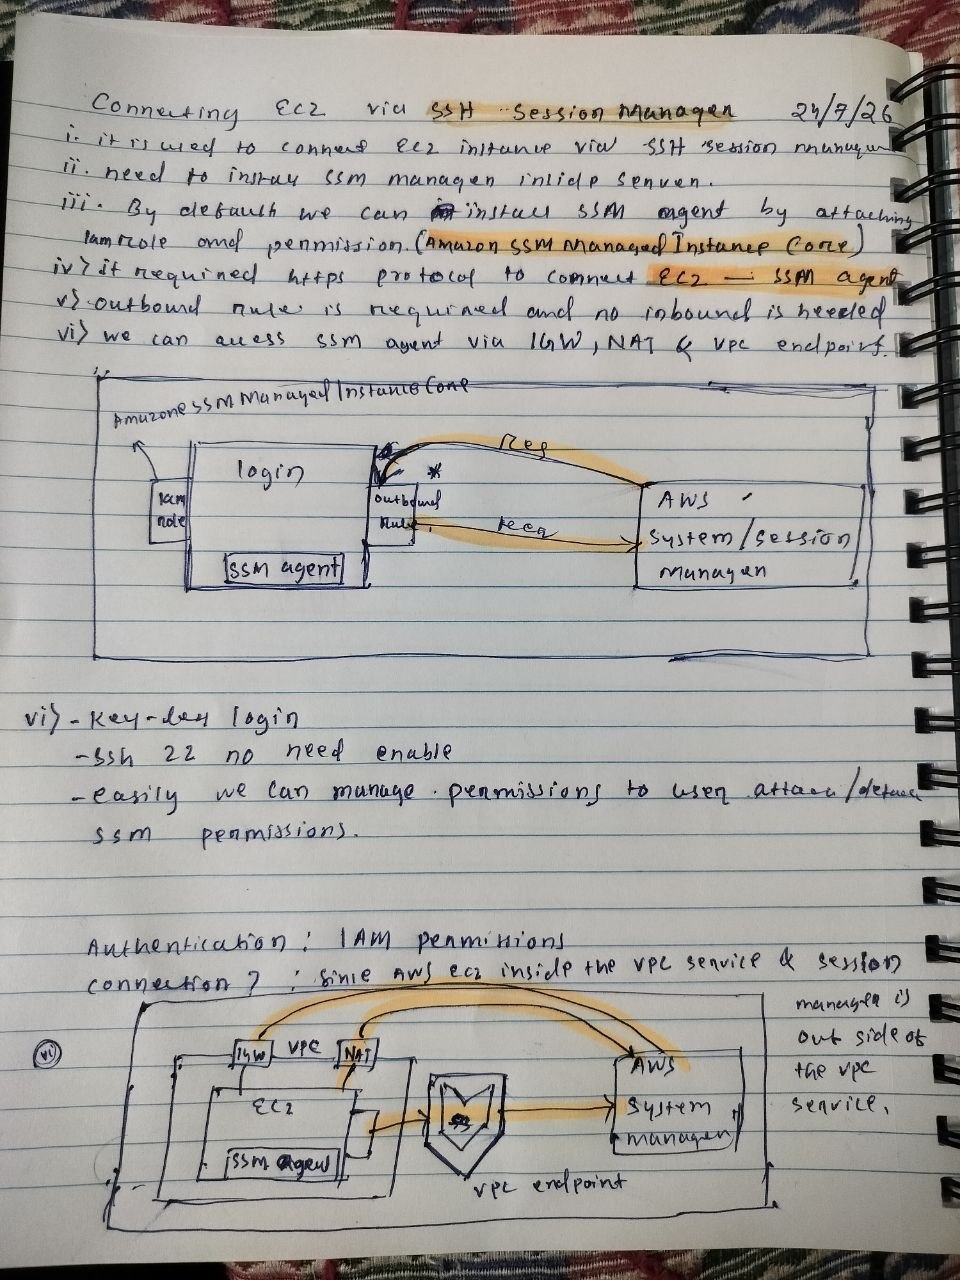 Connecting EC2 via SSH Session Manager 24/7/26
i. it is used to connect EC2 instance via SSH session manager
ii. need to install SSM manager inside server.
iii. By default we can install SSM agent by attaching
Iam role and permission. (Amazon SSM Managed Instance Core)
iv) it required https protocol to connect EC2 — SSM agent
v) outbound rule is required and no inbound is needed
vi) we can access SSM agent via IGW, NAT & VPC endpoint.
Amazone SSM Managed Instance Core
login
Req
*
Iam
role
outbound
Rule
AWS
System/Session
Manager
SSM agent
vi) - Key-less login
- SSh 22 no need enable
- easily we can manage permissions to user attach/detach
SSM permissions.
Authentication : IAM permissions
connection? : Since AWS EC2 inside the VPC service & session
manager is
out side of
the vpc
service.
vi
IGW VPC NAT
AWS
System
manager
EC2
SSM agent
VPC endpoint